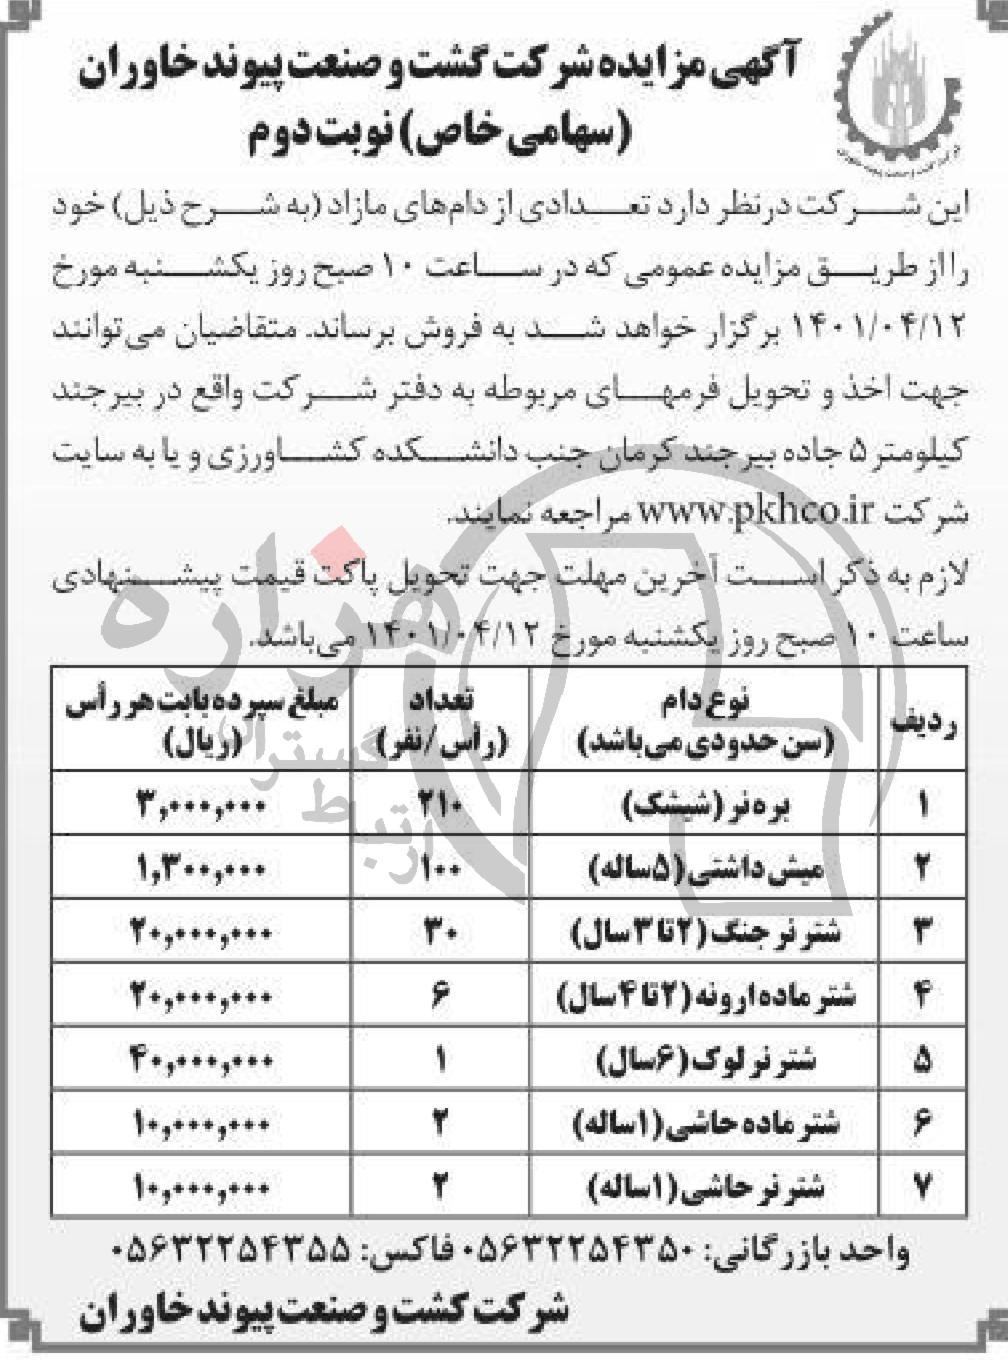 آگهی مزایده شرکت گشت و صنعت پیوند خاوران
(سهامی خاص) نوبت دوم
این شرکت درنظر دارد تعدادی از دام‌های مازاد (به شرح ذیل) خود
را از طریق مزایده عمومی که در ساعت ۱۰ صبح روز یکشنبه مورخ
۱۴۰۱/۰۴/۱۲ برگزار خواهد شد به فروش برساند. متقاضیان می‌توانند
جهت اخذ و تحویل فرمهای مربوطه به دفتر شرکت واقع در بیرجند
کیلومتر ۵ جاده بیرجند کرمان جنب دانشکده کشاورزی و یا به سایت
شرکت www.pkhco.ir مراجعه نمایند.
لازم به ذکر است آخرین مهلت جهت تحویل پاکت قیمت پیشنهادی
ساعت ۱۰ صبح روز یکشنبه مورخ ۱۴۰۱/۰۴/۱۲ می‌باشد.
ردیف نوع دام (سن حدودی می‌باشد) تعداد (رأس/نفر) مبلغ سپرده بابت هر رأس (ریال)
۱ بره نر (شیشک) ۲۱۰ ۳,۰۰۰,۰۰۰
۲ میش داشتی (۵ ساله) ۱۰۰ ۱,۳۰۰,۰۰۰
۳ شتر نر جنگ (۲ تا ۳ سال) ۳۰ ۲۰,۰۰۰,۰۰۰
۴ شتر ماده ارونه (۲ تا ۴ سال) ۶ ۲۰,۰۰۰,۰۰۰
۵ شتر نر لوک (۶ سال) ۱ ۴۰,۰۰۰,۰۰۰
۶ شتر ماده حاشی (۱ ساله) ۲ ۱۰,۰۰۰,۰۰۰
۷ شتر نر حاشی (۱ ساله) ۲ ۱۰,۰۰۰,۰۰۰
واحد بازرگانی: ۰۵۶۳۲۲۵۴۳۵۰ فاکس: ۰۵۶۳۲۲۵۴۳۵۵
شرکت کشت و صنعت پیوند خاوران
هزاره
ارتباط
گستران